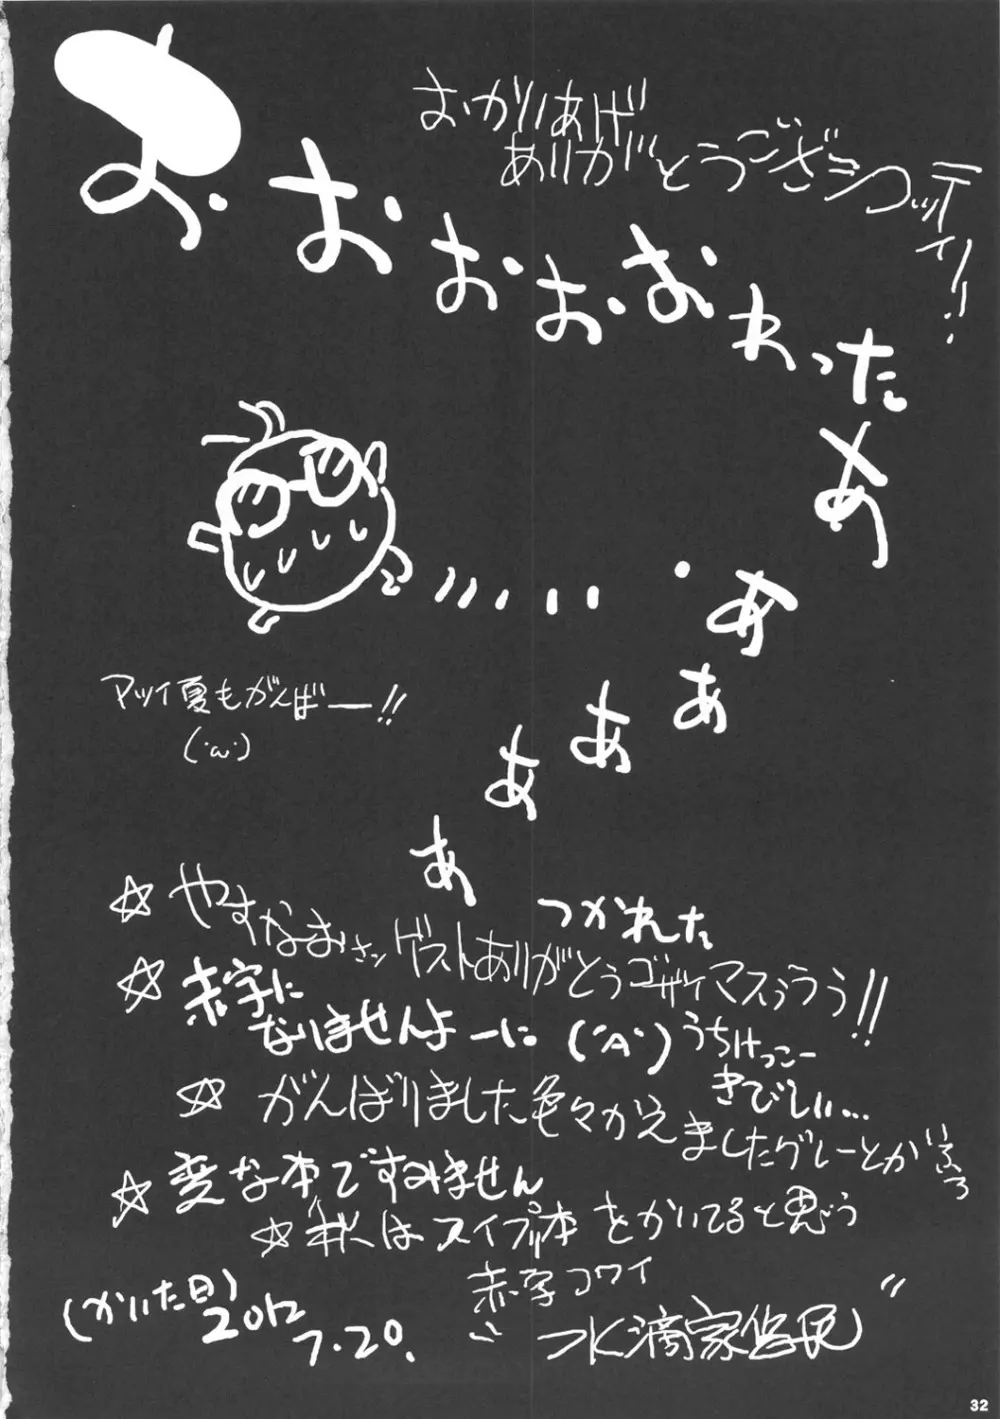 おかいあげ
ありがとうございコッティ!!
お・おおお・おわったぁ
ぁぁぁぁぁ
アツイ夏もがんばー!!
(・ω・)
つかれた
☆やすなまおさんゲストありがとうゴザイマスぅぅぅ!!
☆赤字に
なりませんよーに(´A`)うちけっこー
きびしい…
☆がんばりました色々かえましたグレーとか
☆変な本ですみません
☆秋はスイプリ本をかいてると思う
赤字コワイ
(かいた日)
2012
7.20.
水滴家
32